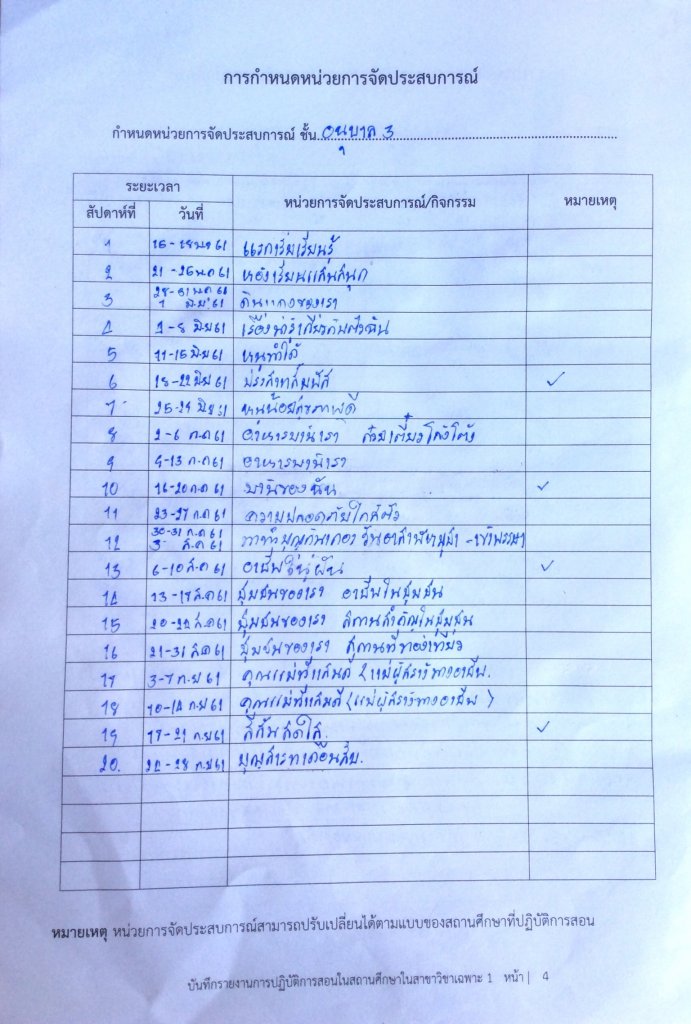 การกำหนดหน่วยการจัดประสบการณ์
กำหนดหน่วยการจัดประสบการณ์ ชั้น อนุบาล 3
ระยะเวลา หน่วยการจัดประสบการณ์/กิจกรรม หมายเหตุ
สัปดาห์ที่ วันที่
1 61 แรกเริ่มเรียนรู้
2 21 - 25 พ.ค 61 ห้องเรียนแสนสนุก
3 28-31 พ.ค 61 ดินแดงของเรา
1 มิ.ย 61
4 - 8 มิ.ย 61 เรื่องน่ารู้เกี่ยวกับตัวฉัน
5 11-15 มิ.ย 61 หนูทำได้
6 18-22 มิ.ย 61 ประสาทสัมผัส ✓
7 25-29 มิ.ย 61 หนูน้อยสุขภาพดี
8 2-6 ก.ค 61 อาหารบ้านเรา
9 9-13 ก.ค 61 อาหารบ้านเรา
10 16-20 ก.ค 61 บ้านของฉัน ✓
11 23-27 ก.ค 61 ความปลอดภัยใกล้ตัว
12 30-31 ก.ค 61 วันอาสาฬหบูชา - เข้าพรรษา
3 ส.ค 61
13 6-10 ส.ค 61 อาชีพ ✓
14 13-17 ส.ค 61 ชุมชนของเรา อาชีพในชุมชน
15 ส.ค 61 ชุมชนของเรา สถานสำคัญในชุมชน
16 31 ส.ค 61 ชุมชนของเรา สถานที่ท่องเที่ยว
17 3-7 ก.ย 61 คุณแม่ที่แสนดี
18 10-14 ก.ย 61 คุณแม่ที่แสนดี
19 17-21 ก.ย 61 สีสันสดใส. ✓
20. 24 - 28 ก.ย 61 บุญสารทเดือนสิบ.
หมายเหตุ หน่วยการจัดประสบการณ์สามารถปรับเปลี่ยนได้ตามแบบของสถานศึกษาที่ปฏิบัติการสอน
บันทึกรายงานการปฏิบัติการสอนในสถานศึกษาในสาขาวิชาเฉพาะ 1 หน้า | 4